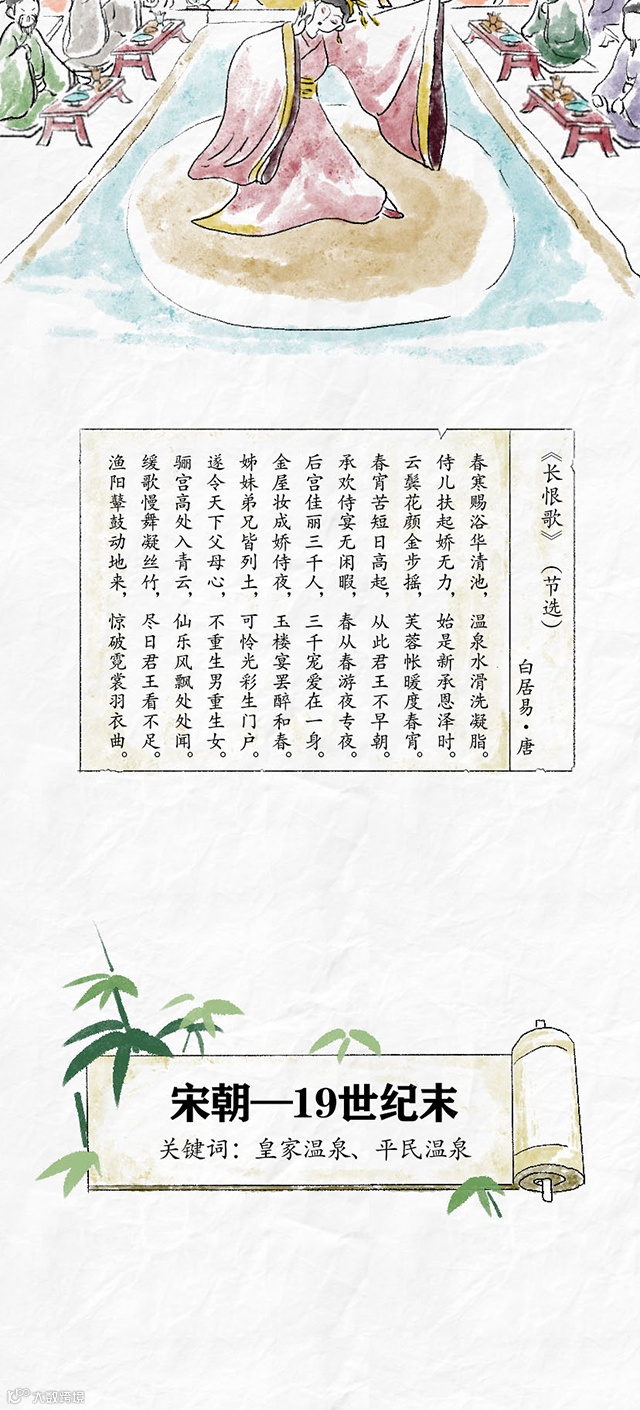 《长恨歌》（节选）
白居易·唐
春寒赐浴华清池，温泉水滑洗凝脂。
侍儿扶起娇无力，始是新承恩泽时。
云鬓花颜金步摇，芙蓉帐暖度春宵。
春宵苦短日高起，从此君王不早朝。
承欢侍宴无闲暇，春从春游夜专夜。
后宫佳丽三千人，三千宠爱在一身。
金屋妆成娇侍夜，玉楼宴罢醉和春。
姊妹弟兄皆列土，可怜光彩生门户。
遂令天下父母心，不重生男重生女。
骊宫高处入青云，仙乐风飘处处闻。
缓歌慢舞凝丝竹，尽日君王看不足。
渔阳鼙鼓动地来，惊破霓裳羽衣曲。
宋朝—19世纪末
关键词：皇家温泉、平民温泉
大数跨境